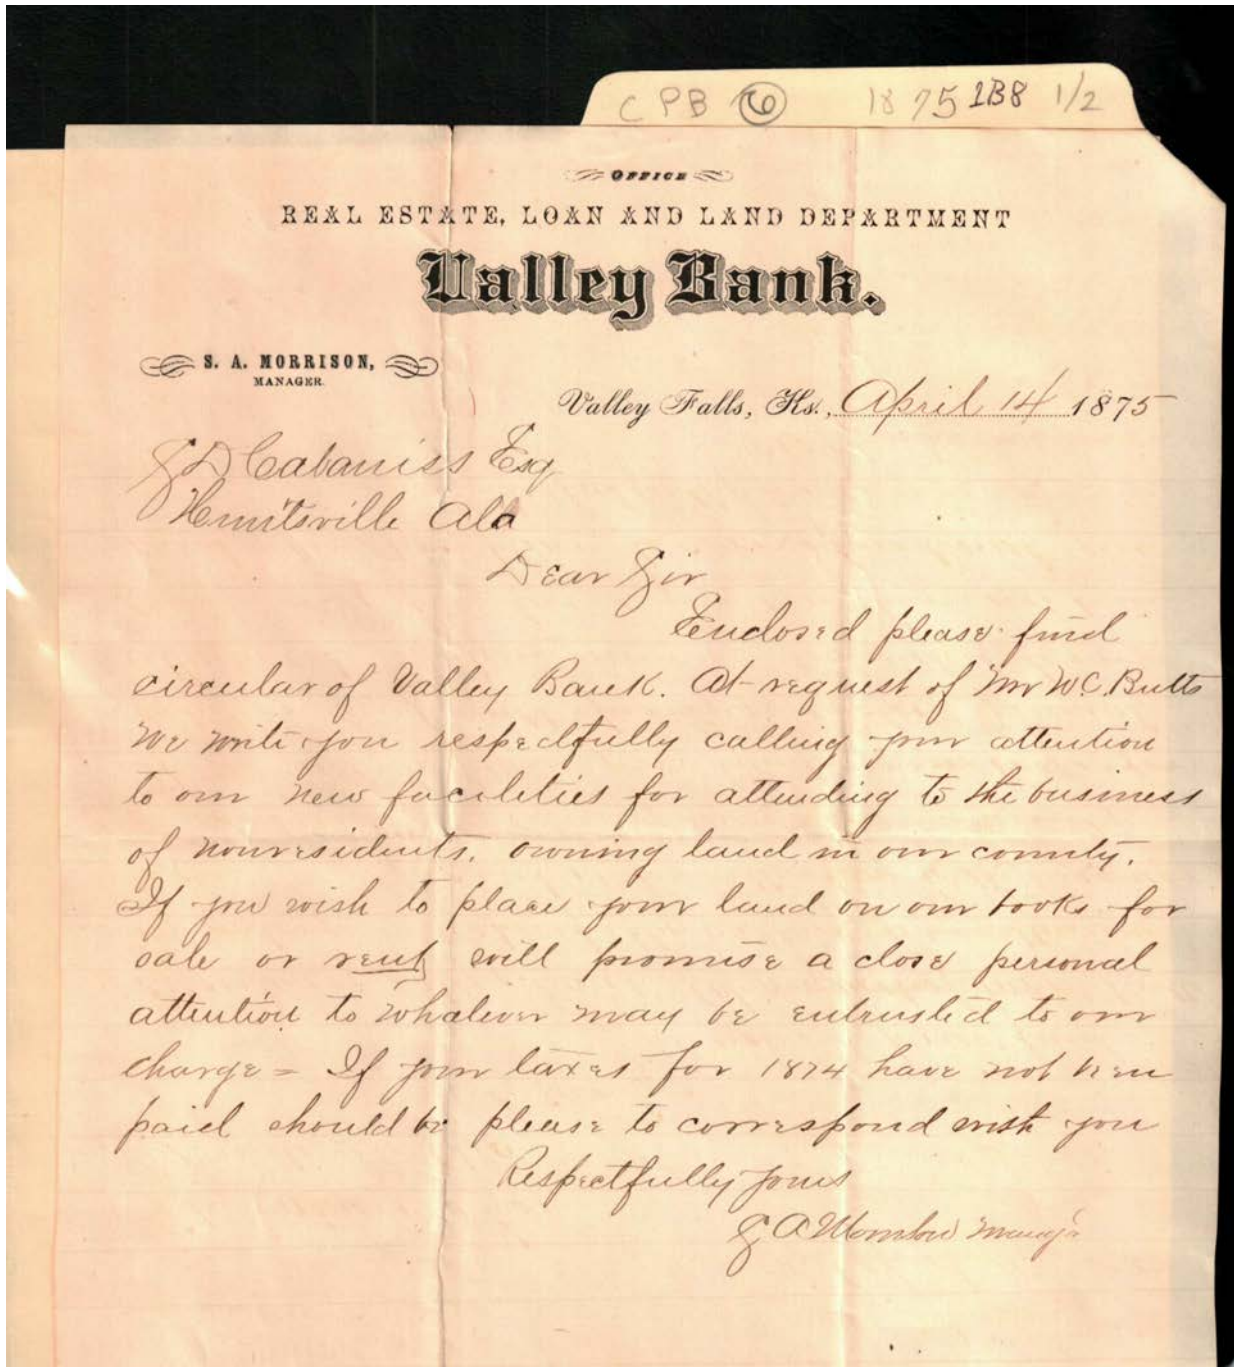 CPB 6 1875 1B8 1/2
OFFICE
REAL ESTATE, LOAN AND LAND DEPARTMENT
Valley Bank.
S. A. MORRISON,
MANAGER.
Valley Falls, Ks., April 14 1875
S D Cabaniss Esq
Huntsville Ala
Dear Sir
Enclosed please find
circular of Valley Bank. At request of Mr W.C. Butts
we write you respectfully calling your attention
to our new facilities for attending to the business
of nonresidents, owning land in our county.
If you wish to place your land on our books for
sale or rent will promise a close personal
attention to whatever may be entrusted to our
charge = If your taxes for 1874 have not been
paid should be please to correspond with you
Respectfully yours
S A Morrison Mang'r